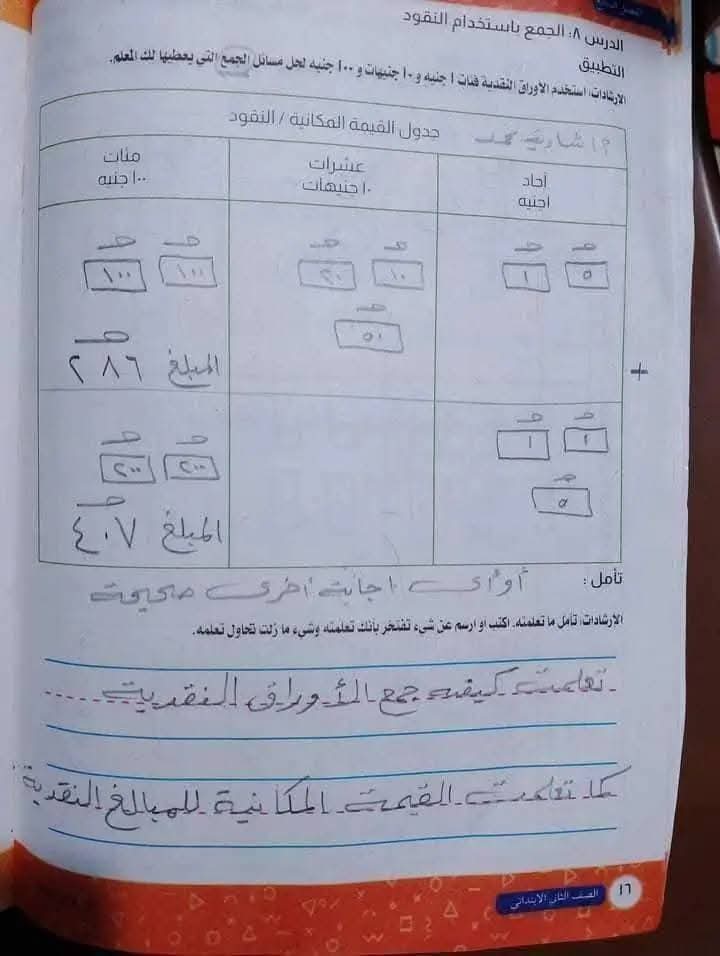 الدرس ٨: الجمع باستخدام النقود
التطبيق
الارشادات: استخدم الأوراق النقدية فئات ١ جنيه و ١٠ جنيهات و ١٠٠ جنيه لحل مسائل الجمع التي يعطيها لك المعلم.
جدول القيمة المكانية / النقود
آحاد
١ جنيه
عشرات
١٠ جنيهات
مئات
١٠٠ جنيه
٥ ١
١٠ ٢٠
٥٠
١٠٠ ١٠٠
المبلغ ٢٨٦
+
١ ١
٥
٢٠٠ ٢٠٠
المبلغ ٤٠٧
تأمل: أو أى اجابة أخرى صحيحة
الارشادات: تأمل ما تعلمته. اكتب او ارسم عن شيء تفتخر بأنك تعلمته وشيء ما زلت تحاول تعلمه.
تعلمت كيفية جمع الأوراق النقدية
كما تعلمت القيمة المكانية للمبالغ النقدية
١٦ الصف الثاني الابتدائي